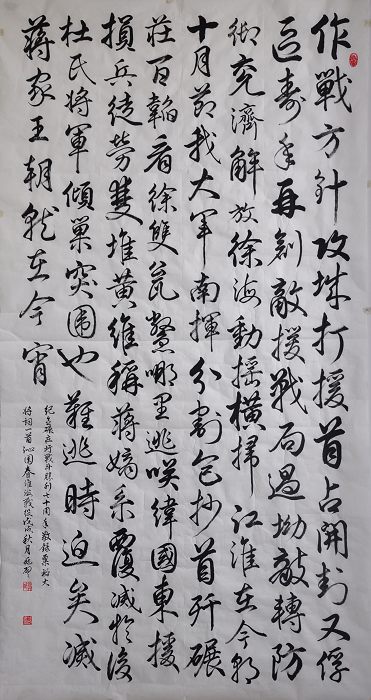 作戰方針攻城打援首占開封又俘
區壽年再創敵援戰局過坳敵轉防
御兖濟解放徐海動摇橫掃江淮在今朝
十月節我大軍南揮分割包抄首歼碾
莊百韜看徐雙瓮鱉哪里逃唉偉國東援
損兵徒勞雙堆黄維稱蔣嫡系覆滅於後
杜氏將軍傾巢突圍也難逃時迫矣滅
蔣家王朝就在今宵
紀念碾庄圩戰斗勝利七十周年敬錄粟裕大
將詞一首沁園春淮海戰役戊戌秋月